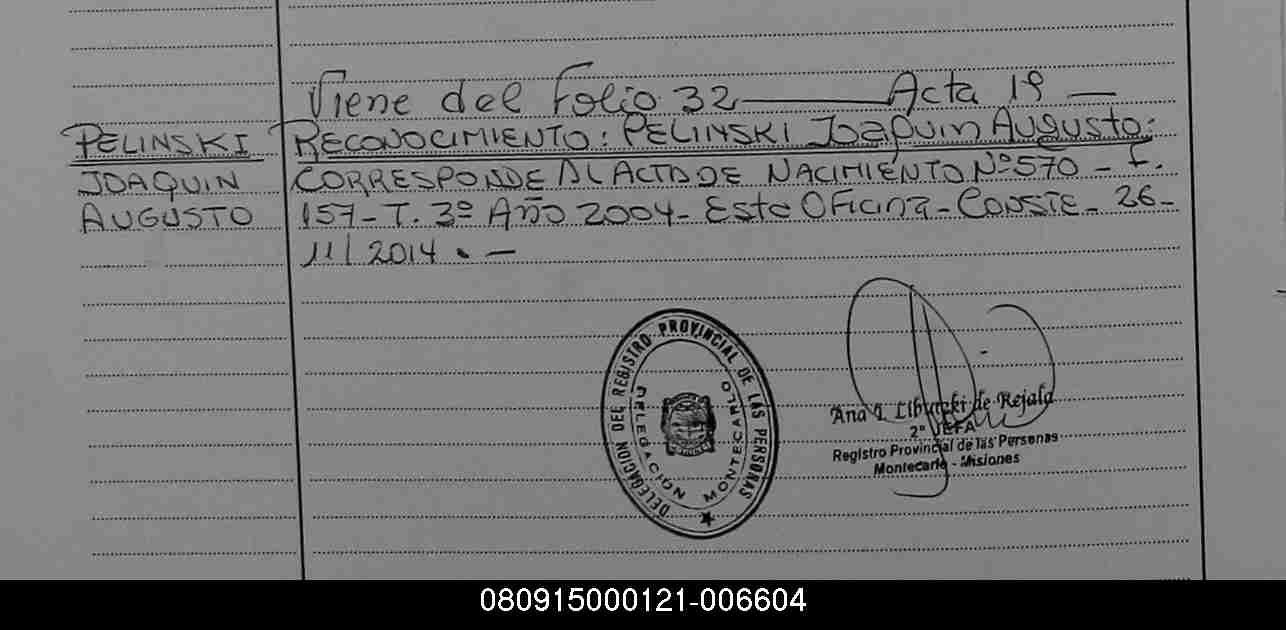 Viene del Folio 32 — Acta 1º —
PELINSKI
JOAQUIN
AUGUSTO
RECONOCIMIENTO: PELINSKI JOAQUIN AUGUSTO:
CORRESPONDE AL ACTA DE NACIMIENTO Nº 570 - F.
157 - T. 3º Año 2004 - Esta Oficina - CONSTE - 26 -
11/2014 . —
DELEGACION DEL REGISTRO PROVINCIAL DE LAS PERSONAS
DELEGACIÓN MONTECARLO
Ana I. Libutzki de Rejala
2º JEFA
Registro Provincial de las Personas
Montecarlo - Misiones
080915000121-006604